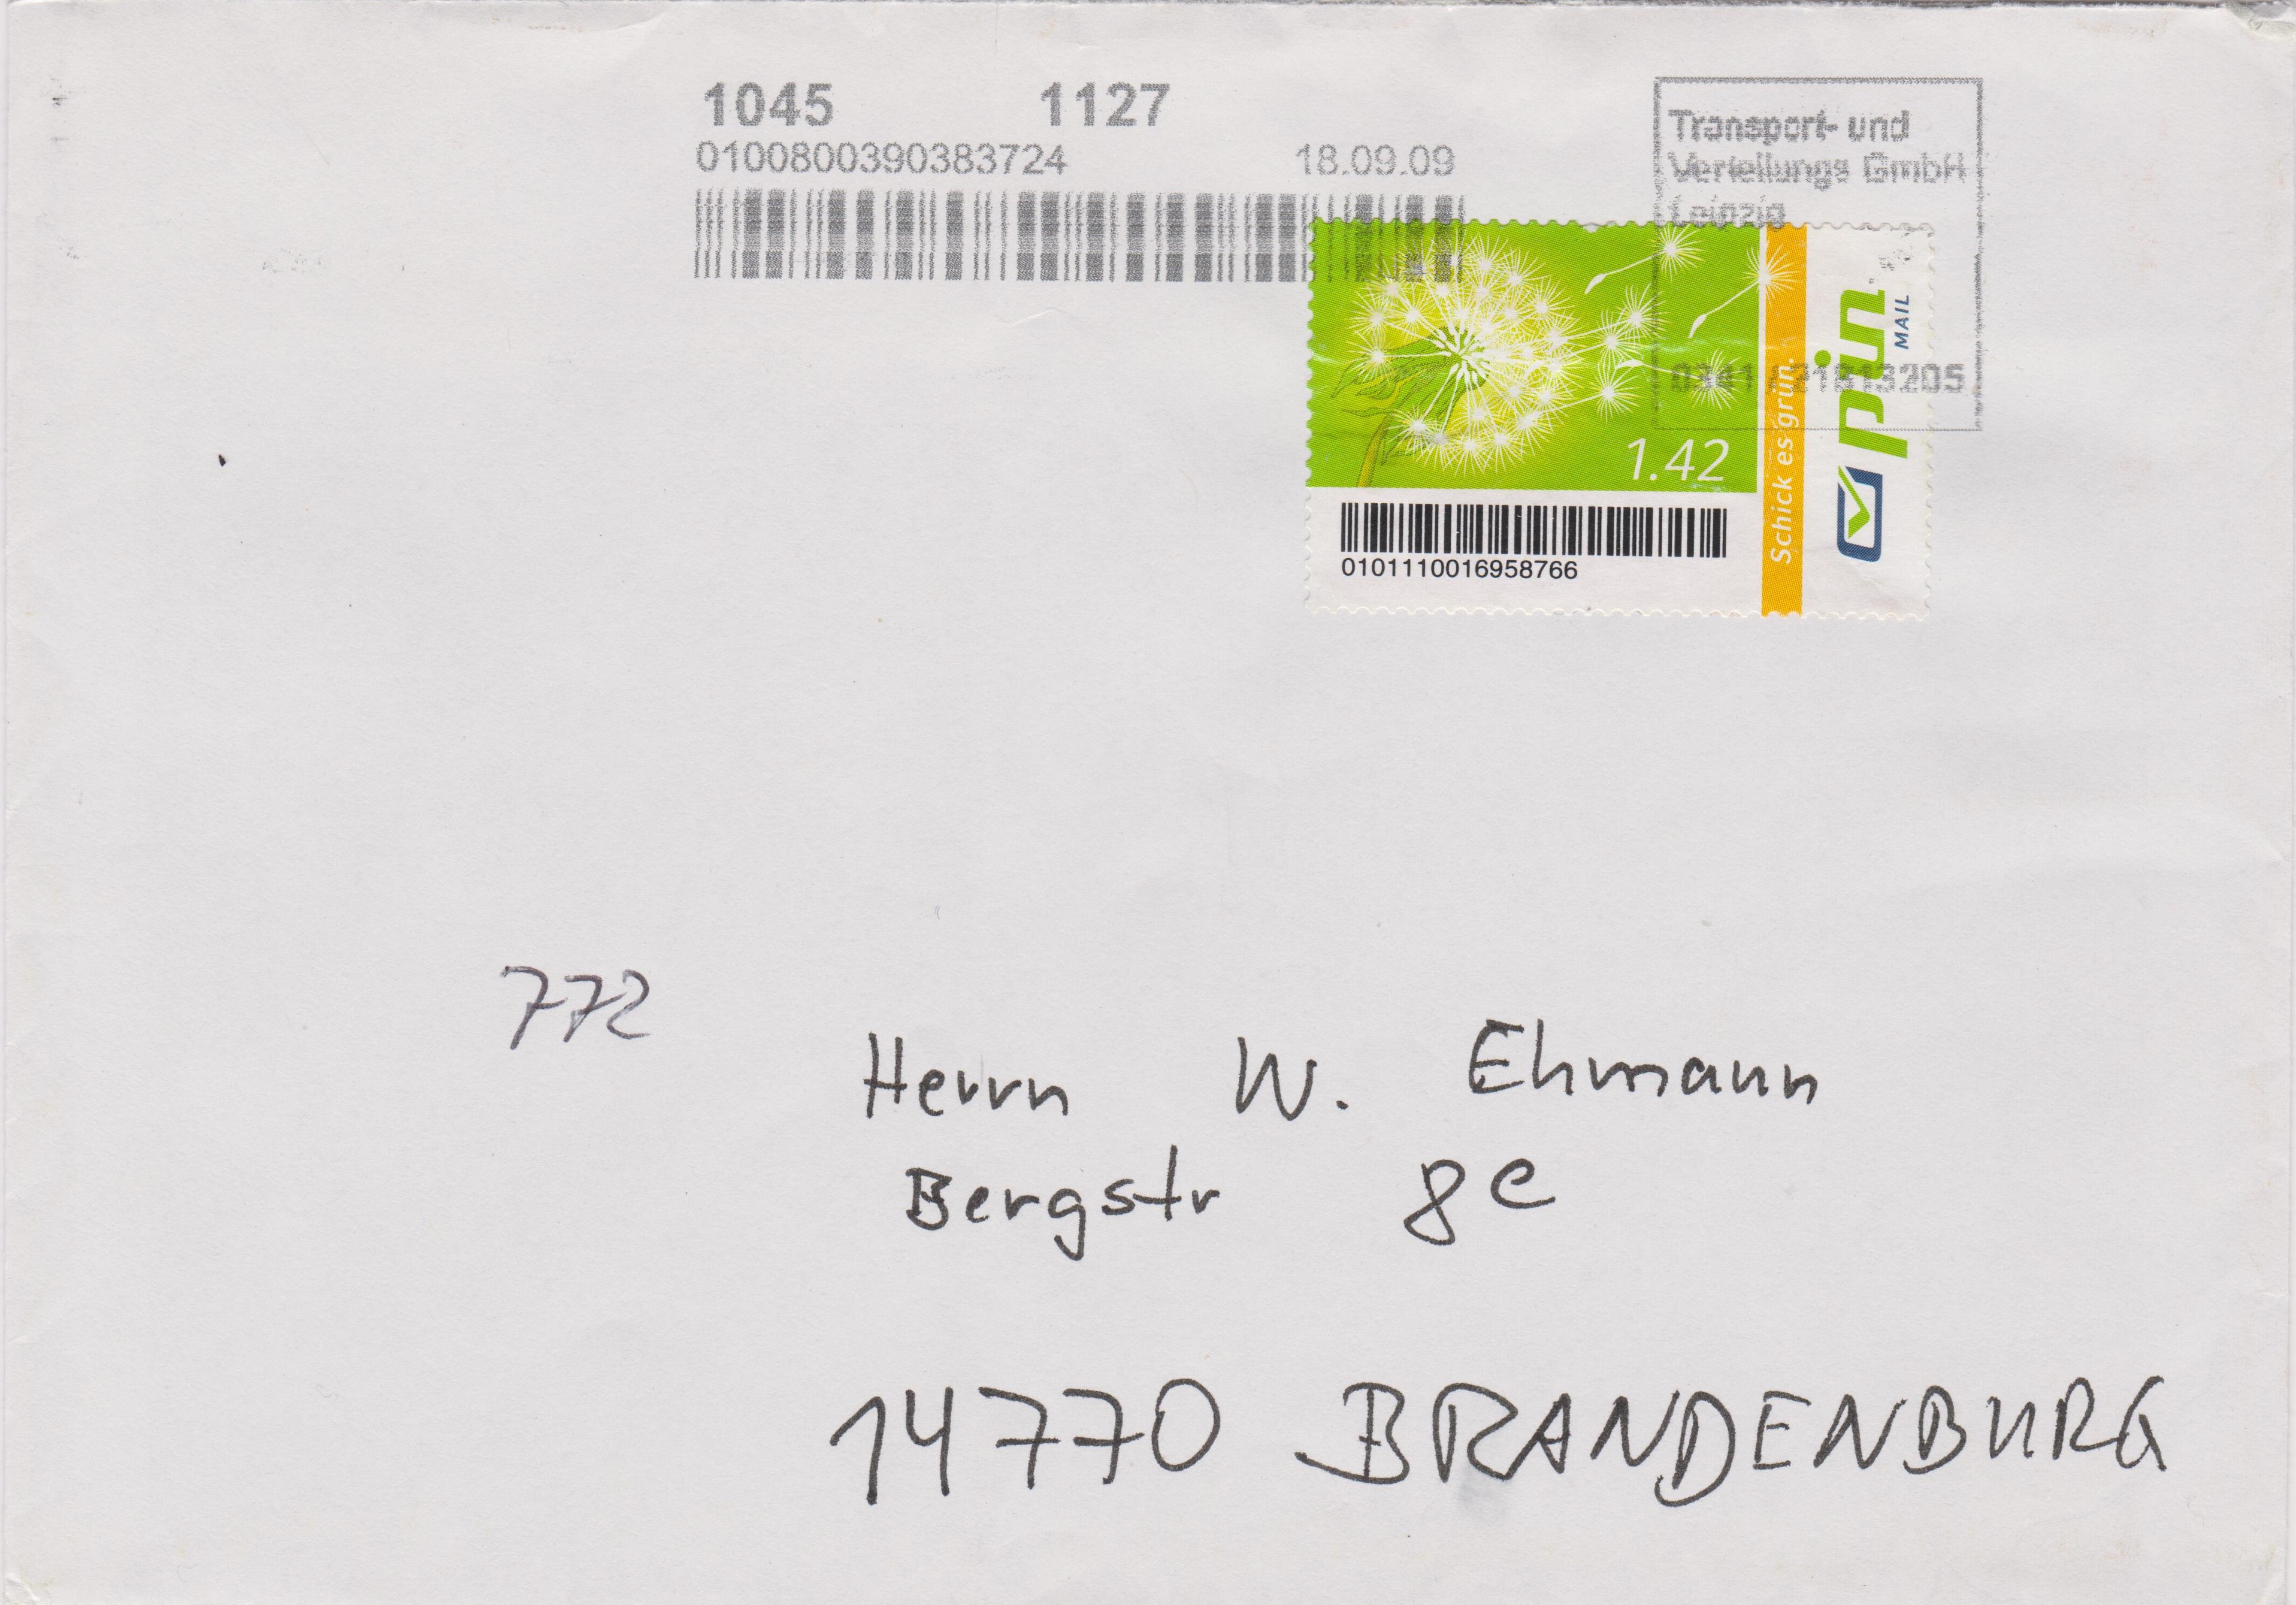 1045 1127
0100800390383724 18.09.09
Transport- und
Verteilungs GmbH
Leipzig
1.42
Schick es grün.
pin
MAIL
0101110016958766
772
Herrn W. Ehmann
Bergstr 8e
14770 BRANDENBURG